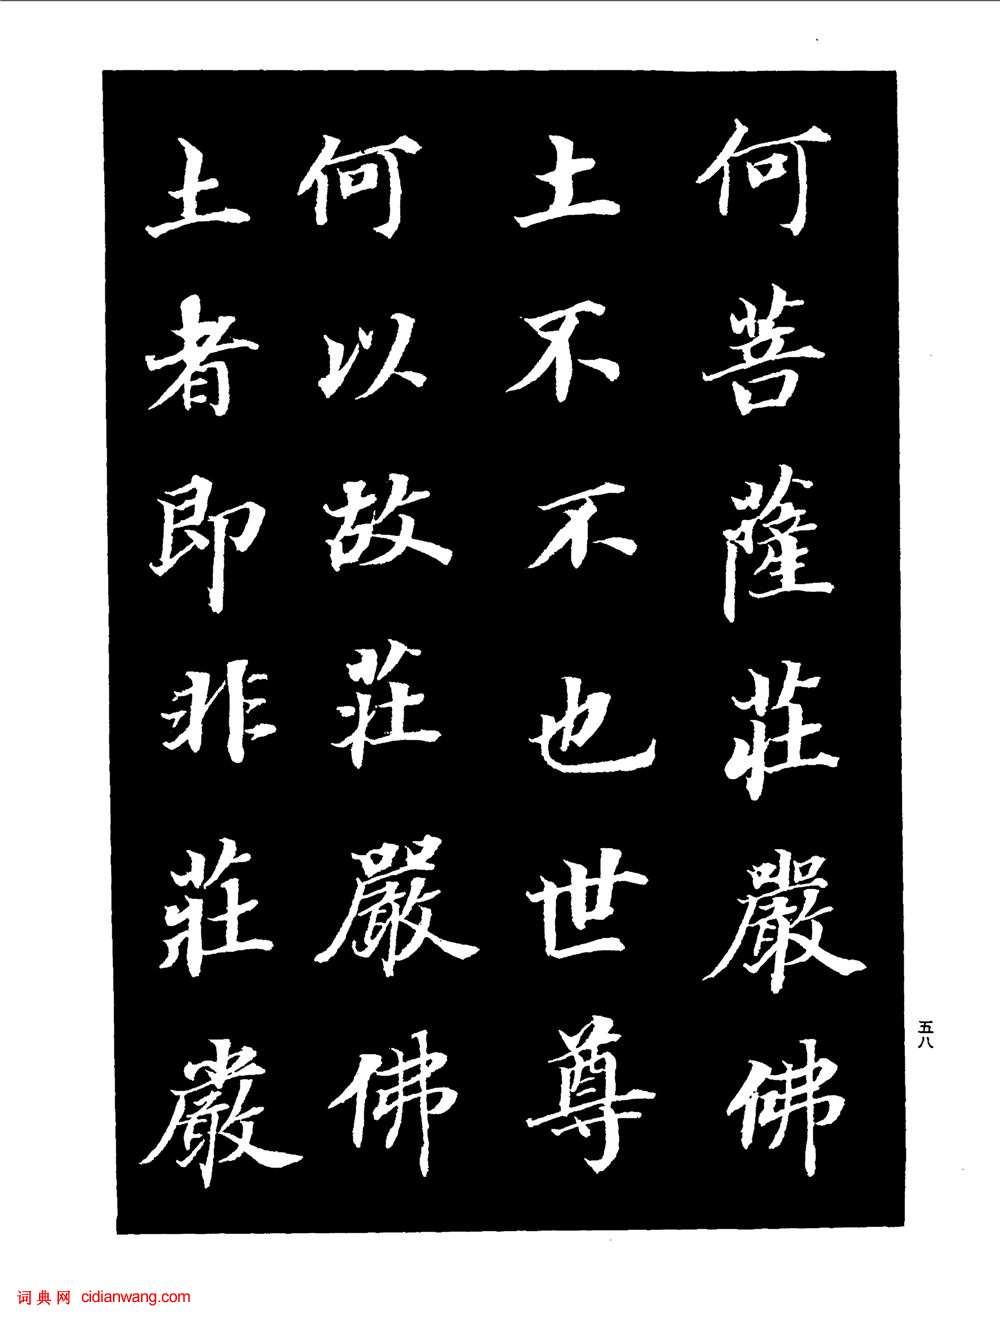 何菩薩莊嚴佛
土不不也世尊
何以故莊嚴佛
土者即非莊嚴
五八
词典网 cidianwang.com